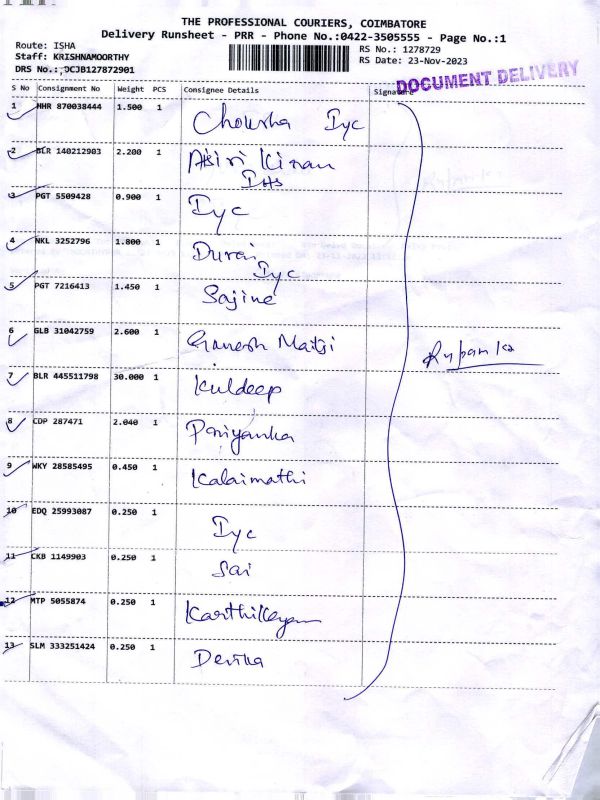 THE PROFESSIONAL COURIERS, COIMBATORE
Delivery Runsheet - PRR - Phone No.:0422-3505555 - Page No.:1
Route: ISHA
Staff: KRISHNAMOORTHY
DRS No.: DCJB127872901
RS No.: 1278729
RS Date: 23-Nov-2023
DOCUMENT DELIVERY
S No Consignment No Weight PCS Consignee Details Signature
1 NHR 870038444 1.500 1 Iyc
2 BLR 140212903 2.200 1 Kiran
IHS
3 PGT 5509428 0.900 1 Iyc
4 NKL 3252796 1.800 1 Durai
Iyc
5 PGT 7216413 1.450 1 Sajine
6 GLB 31042759 2.600 1 Ganesh
7 BLR 445511798 30.000 1 Kuldeep
8 CDP 287471 2.040 1 Pariyanka
9 WKY 28585495 0.450 1 Kalaimathi
10 EDQ 25993087 0.250 1 Iyc
11 CKB 1149903 0.250 1 Sai
12 MTP 5055874 0.250 1 Karthikeyan
13 SLM 333251424 0.250 1 Devika